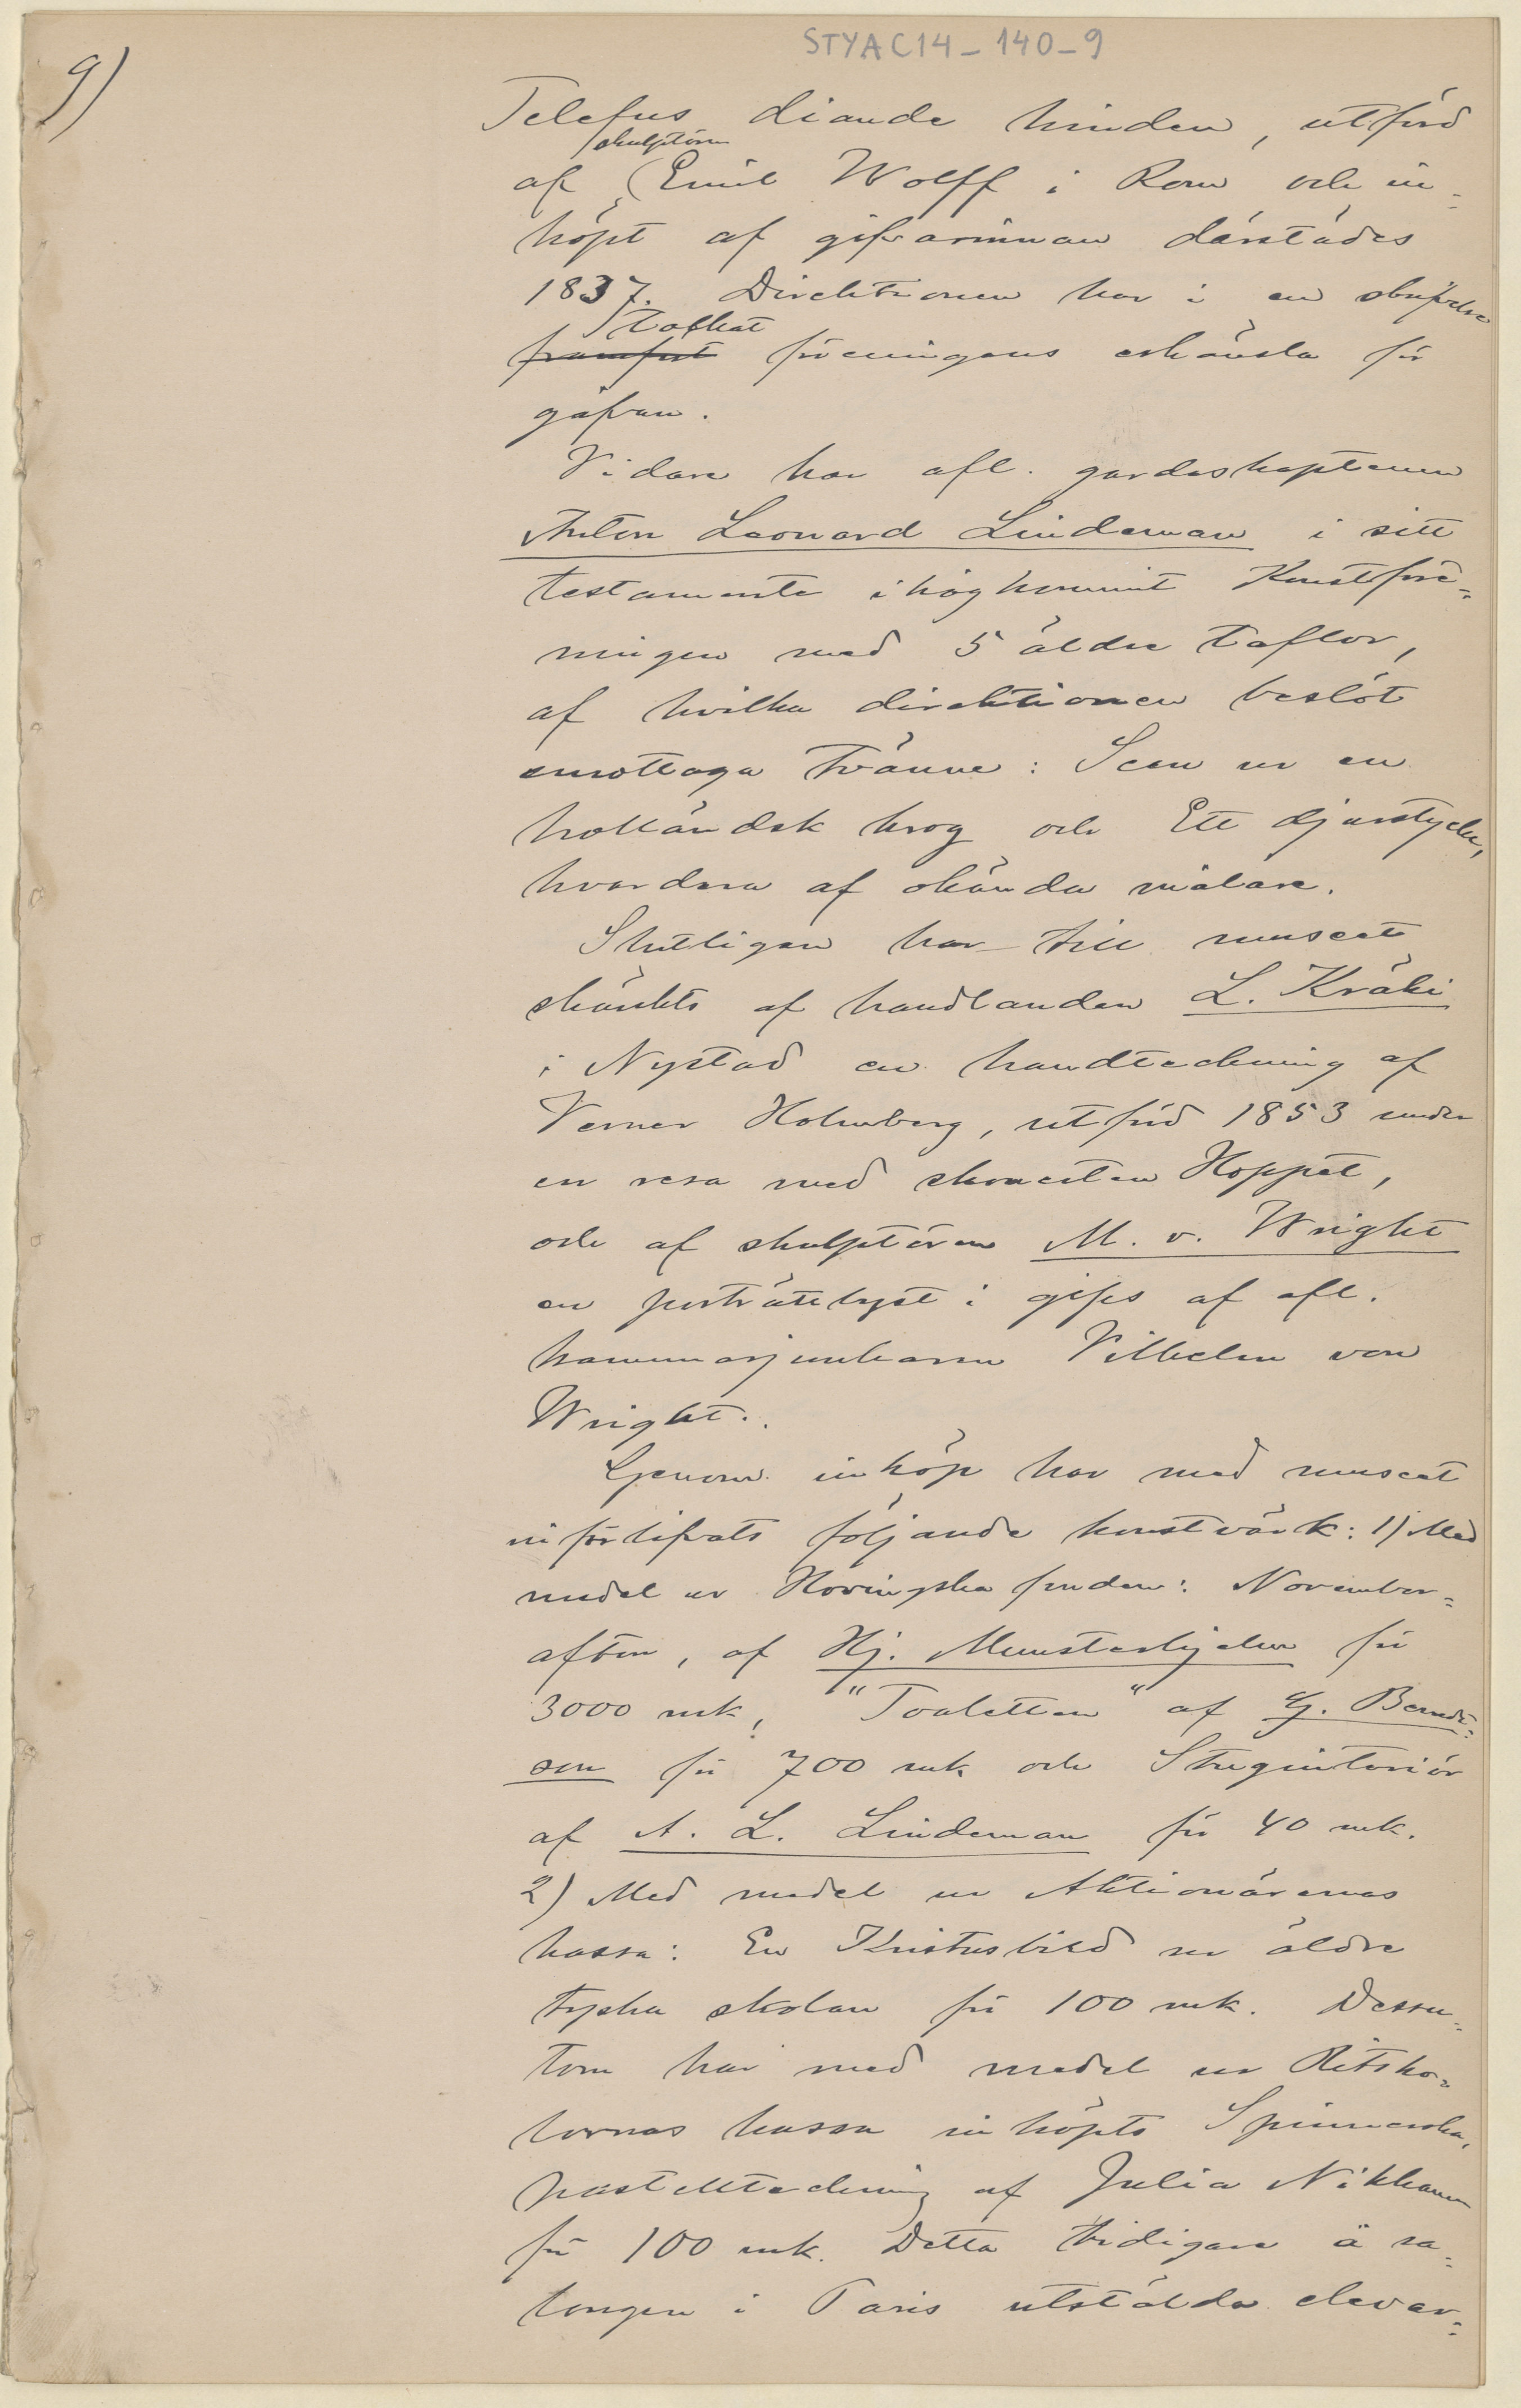 STYAC14-140-9
9)
Telefus diande hinden, utförd
skulptören
af Emil Wolff i Rom och in-
köpt af gifvarinnan därstädes
1837. Direktionen har i en skrifvelse
tolkat
framfört föreningens erkänsla för
gåfvan.
Vidare har afl. gardeskaptenen
Anton Leonard Lindeman i sitt
testamente ihågkommit Konstföre-
ningen med 5 äldre taflor,
af hvilka direktionen beslöt
emottaga tvänne: Scen ur en
holländsk krog och Ett djurstycke,
hvardera af okända målare.
Slutligen har till museet
skänkts af handlanden L. Kräki
i Nystad en handteckning af
Verner Holmberg, utförd 1853 under
en resa med skonerten Hoppet,
och af skulptören M. v. Wright
en porträttbyst i gips af afl.
kammarjunkaren Vilhelm von
Wright.
Genom inköp har med museet
införlifvats följande konstvärk: 1) Med
medel ur Hovingska fonden: November-
afton, af Hj. Munsterhjelm för
3000 mk, "Toaletten" af G. Berndt-
son för 700 mk och Stuginteriör
af A. L. Lindeman för 40 mk.
2) Med medel ur Aktionärernas
kassa: En Kristusbild ur äldre
tyska skolan för 100 mk. Dessu-
tom har med medel ur Ritsko-
lornas kassa inköpts Spinnerska,
pastellteckning af Julia
för 100 mk. Detta tidigare å sa-
longen i Paris utstälda elevar-